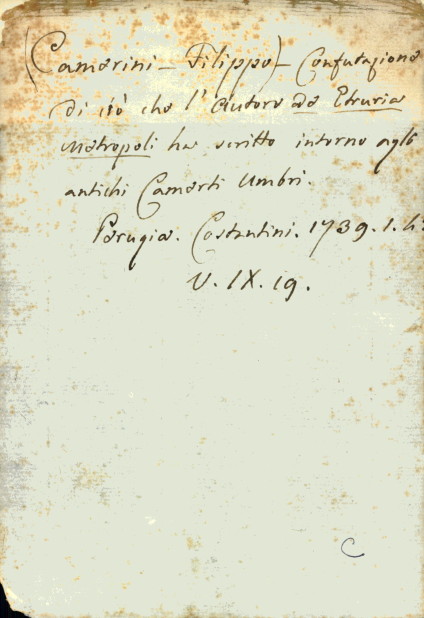 (Camerini - Filippo) - Confutazione
di ciò che l'Autore de Etruria
Metropoli ha scritto intorno agli
antichi Camerti Umbri.
Perugia. Costantini. 1739. 1.
V. IX. 19.
C